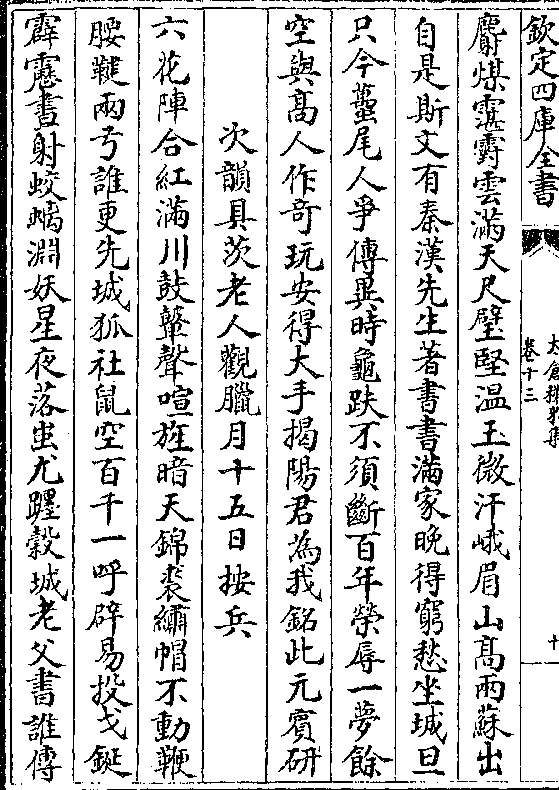 欽定四庫全書
太倉稊米集
卷十三
十
麝煤䨴䨴雲滿天尺璧堅温玉微汗峨眉山髙兩蘇出
自是斯文有秦漢先生著書書滿家晚得窮愁坐城旦
只今蠆尾人爭傳異時龜趺不須斷百年榮辱一夢餘
空與髙人作竒玩安得大手揭陽君為我銘此元賓研
次韻具茨老人觀臘月十五日按兵
六花陣合紅滿川鼓鼙聲喧旌暗天錦裘繡帽不動鞭
腰鞬兩弓誰更先城狐社鼠空百千一呼辟易投戈鋋
霹靂晝射蛟螭淵妖星夜落蚩尤躔榖城老父書誰傳